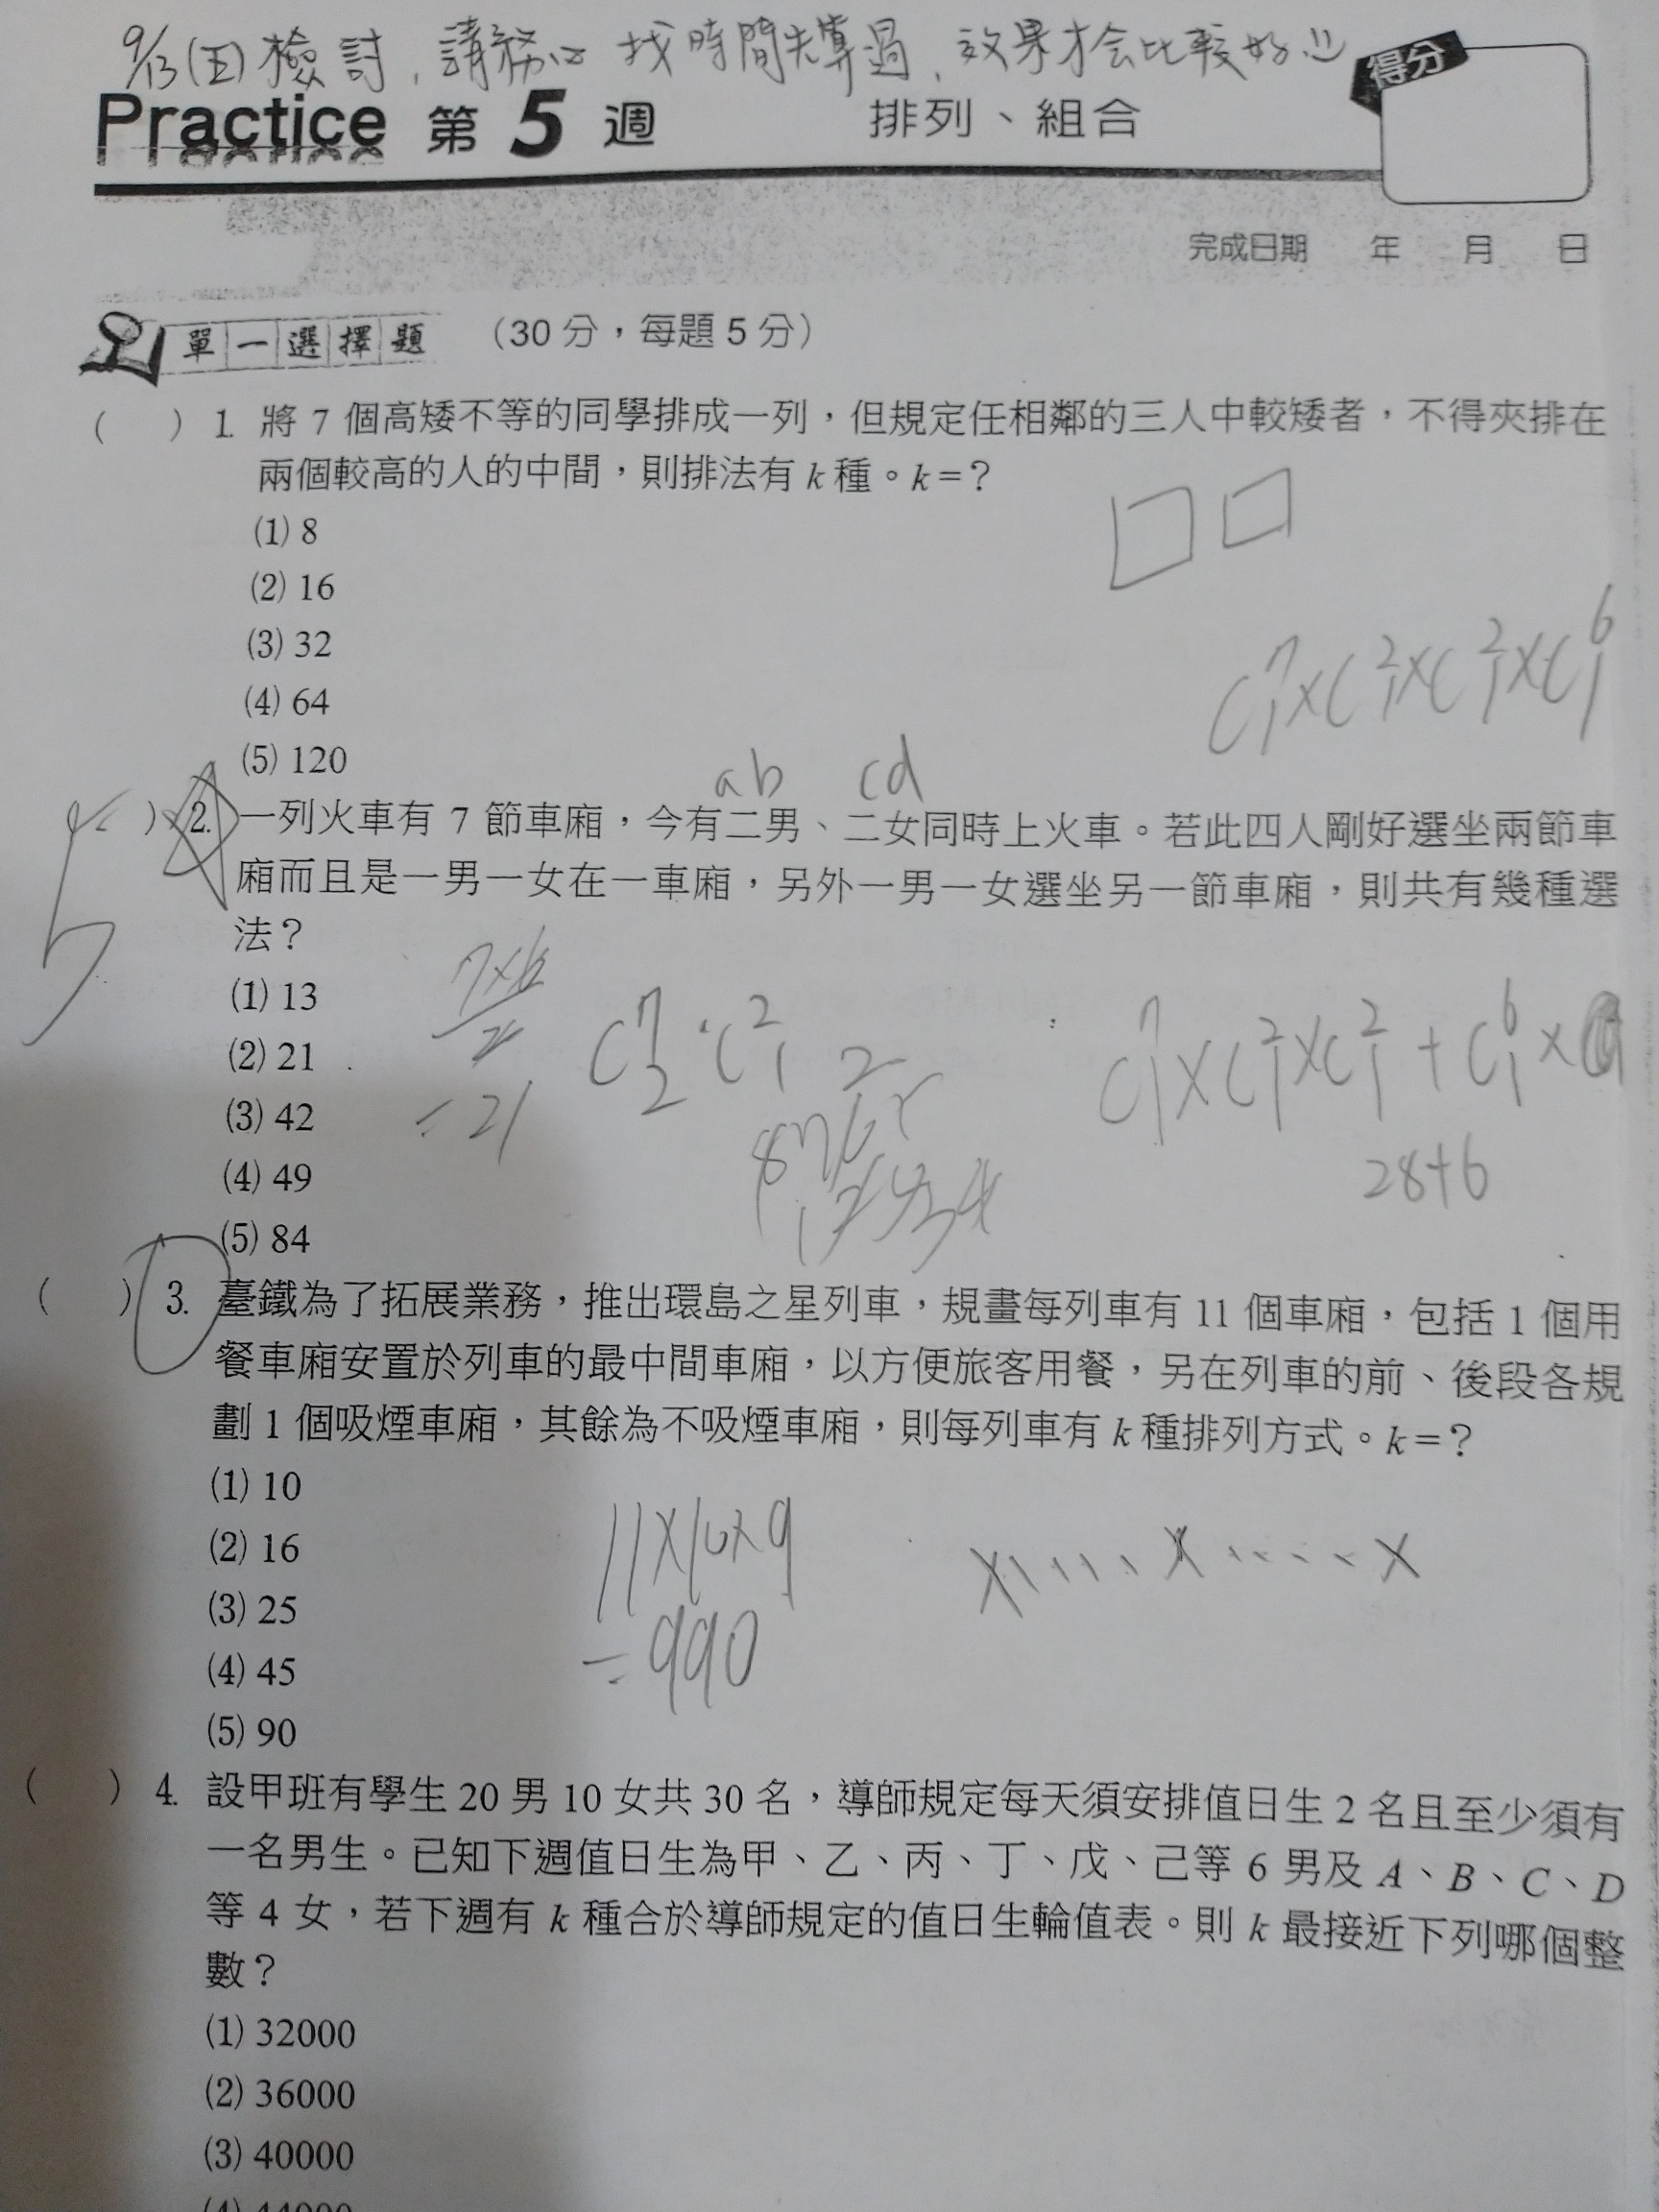 9/13(五)檢討,請務必找時間先算過,效果才会比較好
Practice 第5週 排列、組合
得分
完成日期 年 月 日
單一選擇題 (30分,每題5分)
( ) 1. 將7個高矮不等的同學排成一列,但規定任相鄰的三人中較矮者,不得夾排在
兩個較高的人的中間,則排法有k種。k=?
(1) 8
(2) 16
(3) 32
(4) 64
(5) 120
C⁷₁×C²₁×C²₁×C⁶₁
ab cd
5
( ) 2. 一列火車有7節車廂,今有二男、二女同時上火車。若此四人剛好選坐兩節車
廂而且是一男一女在一車廂,另外一男一女選坐另一節車廂,則共有幾種選
法?
(1) 13
(2) 21
(3) 42
(4) 49
(5) 84
7×6
2
=21
C⁷₂·C²₁
C⁷₁×C²₁×C²₁+C⁶₁×
28+6
( ) 3. 臺鐵為了拓展業務,推出環島之星列車,規畫每列車有11個車廂,包括1個用
餐車廂安置於列車的最中間車廂,以方便旅客用餐,另在列車的前、後段各規
劃1個吸煙車廂,其餘為不吸煙車廂,則每列車有k種排列方式。k=?
(1) 10
(2) 16
(3) 25
(4) 45
(5) 90
11×10×9
=990
( ) 4. 設甲班有學生20男10女共30名,導師規定每天須安排值日生2名且至少須有
一名男生。已知下週值日生為甲、乙、丙、丁、戊、己等6男及A、B、C、D
等4女,若下週有k種合於導師規定的值日生輪值表。則k最接近下列哪個整
數?
(1) 32000
(2) 36000
(3) 40000
(4) 44000